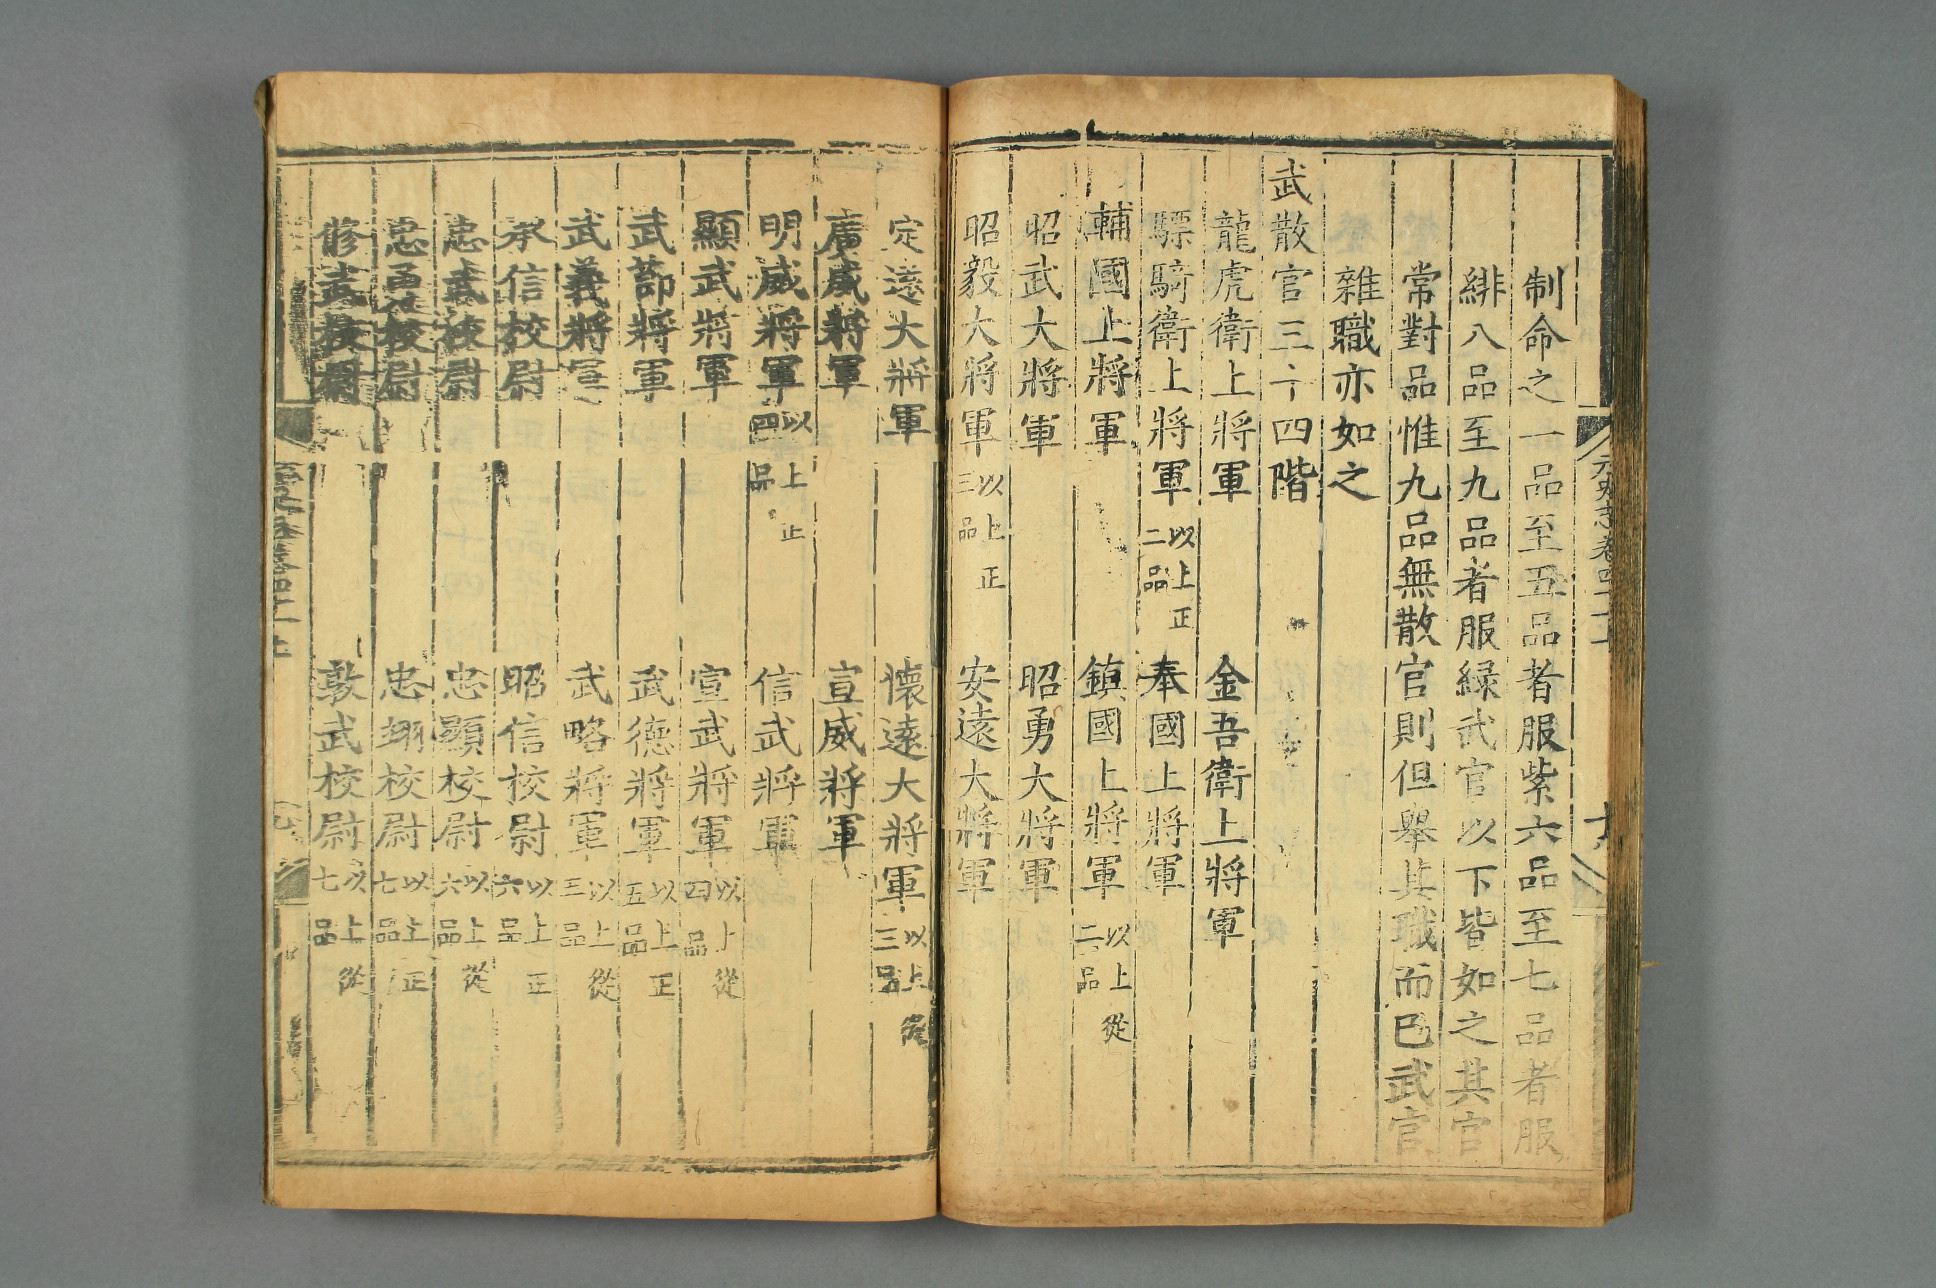 制命之一品至五品者服紫六品至七品者服
緋八品至九品者服緑武官以下皆如之其官
常對品惟九品無散官則但舉其職而已武官
雜職亦如之
武散官三十四階
龍虎衛上將軍 金吾衛上將軍
驃騎衛上將軍以上正二品 奉國上將軍
輔國上將軍 鎮國上將軍以上從二品
昭武大將軍 昭勇大將軍
昭毅大將軍以上正三品 安遠大將軍
定遠大將軍 懷遠大將軍以上從三品
廣威將軍 宣威將軍
明威將軍以上正四品 信武將軍
顯武將軍 宣武將軍以上從四品
武節將軍 武德將軍以上正五品
武義將軍 武略將軍以上從三品
承信校尉 昭信校尉以上正六品
忠武校尉 忠顯校尉以上從六品
忠勇校尉 忠翊校尉以上正七品
修武校尉 敦武校尉以上從七品